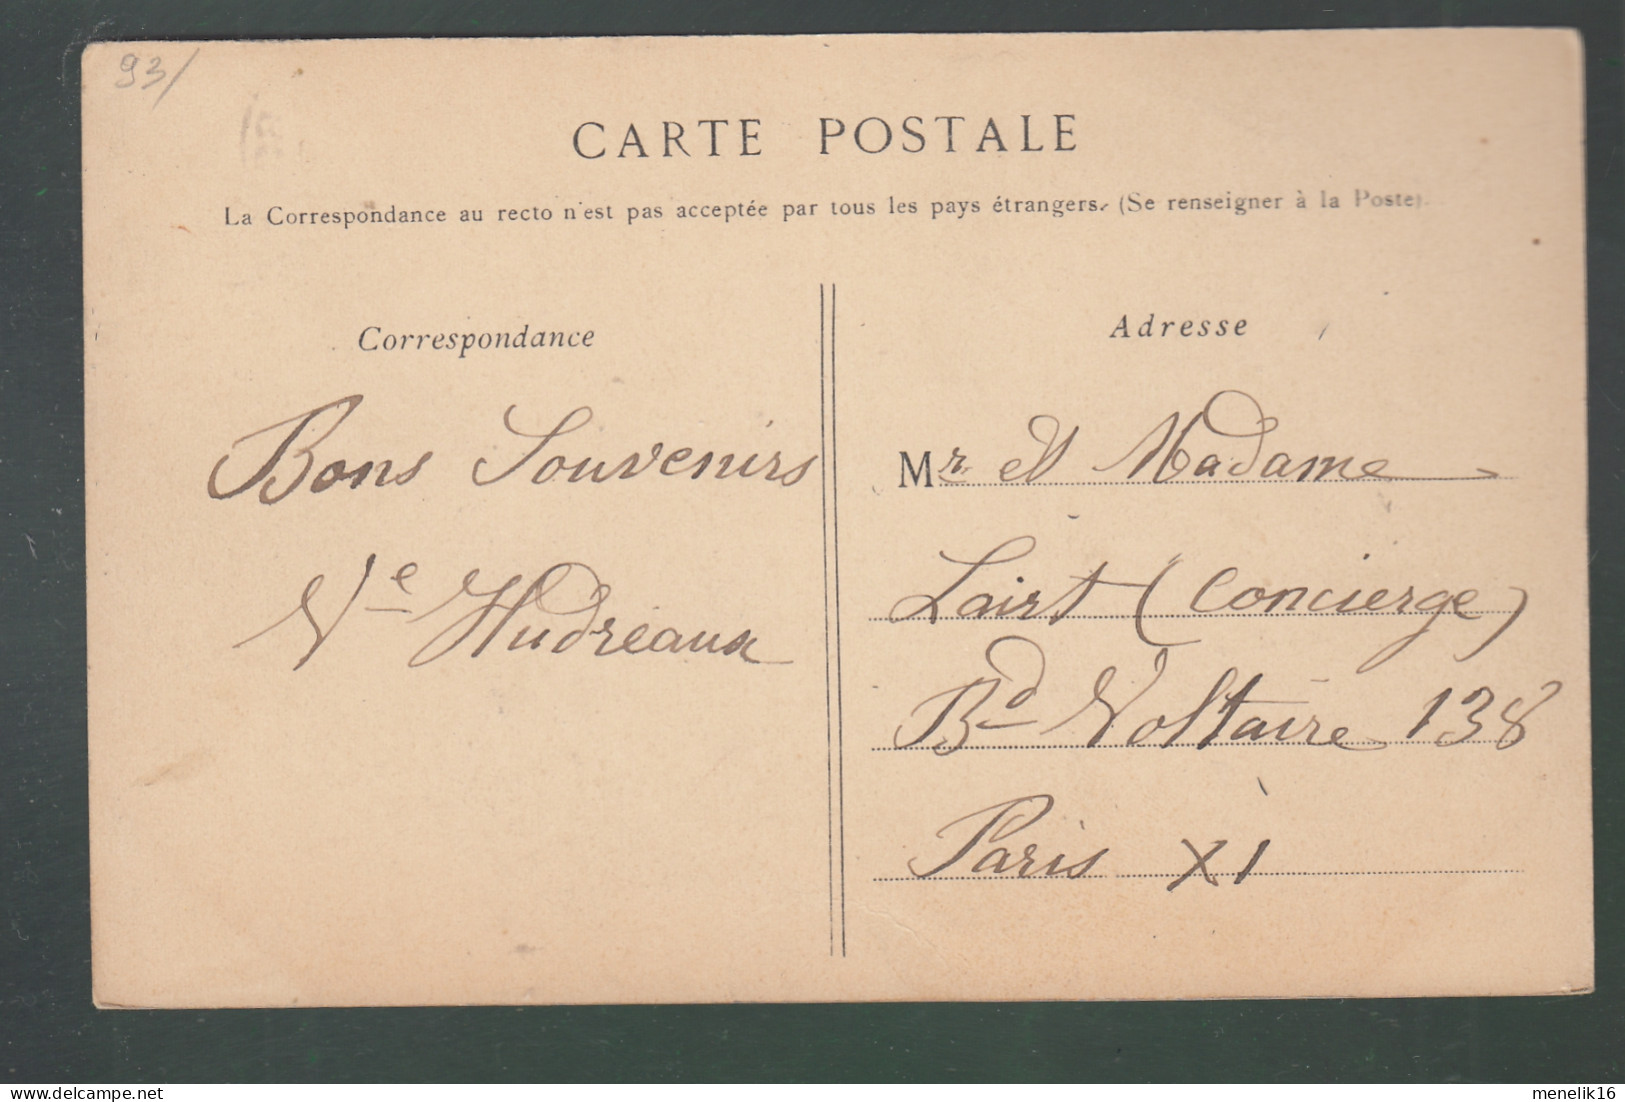 93/
CARTE POSTALE
La Correspondance au recto n'est pas acceptée par tous les pays étrangers. (Se renseigner à la Poste).
Correspondance
Bons Souvenirs
Ve Hudreaux
Adresse
Mr. et Madame
Lairt (Concierge)
Bd Voltaire 138
Paris XI
delcampe.net
menelik16